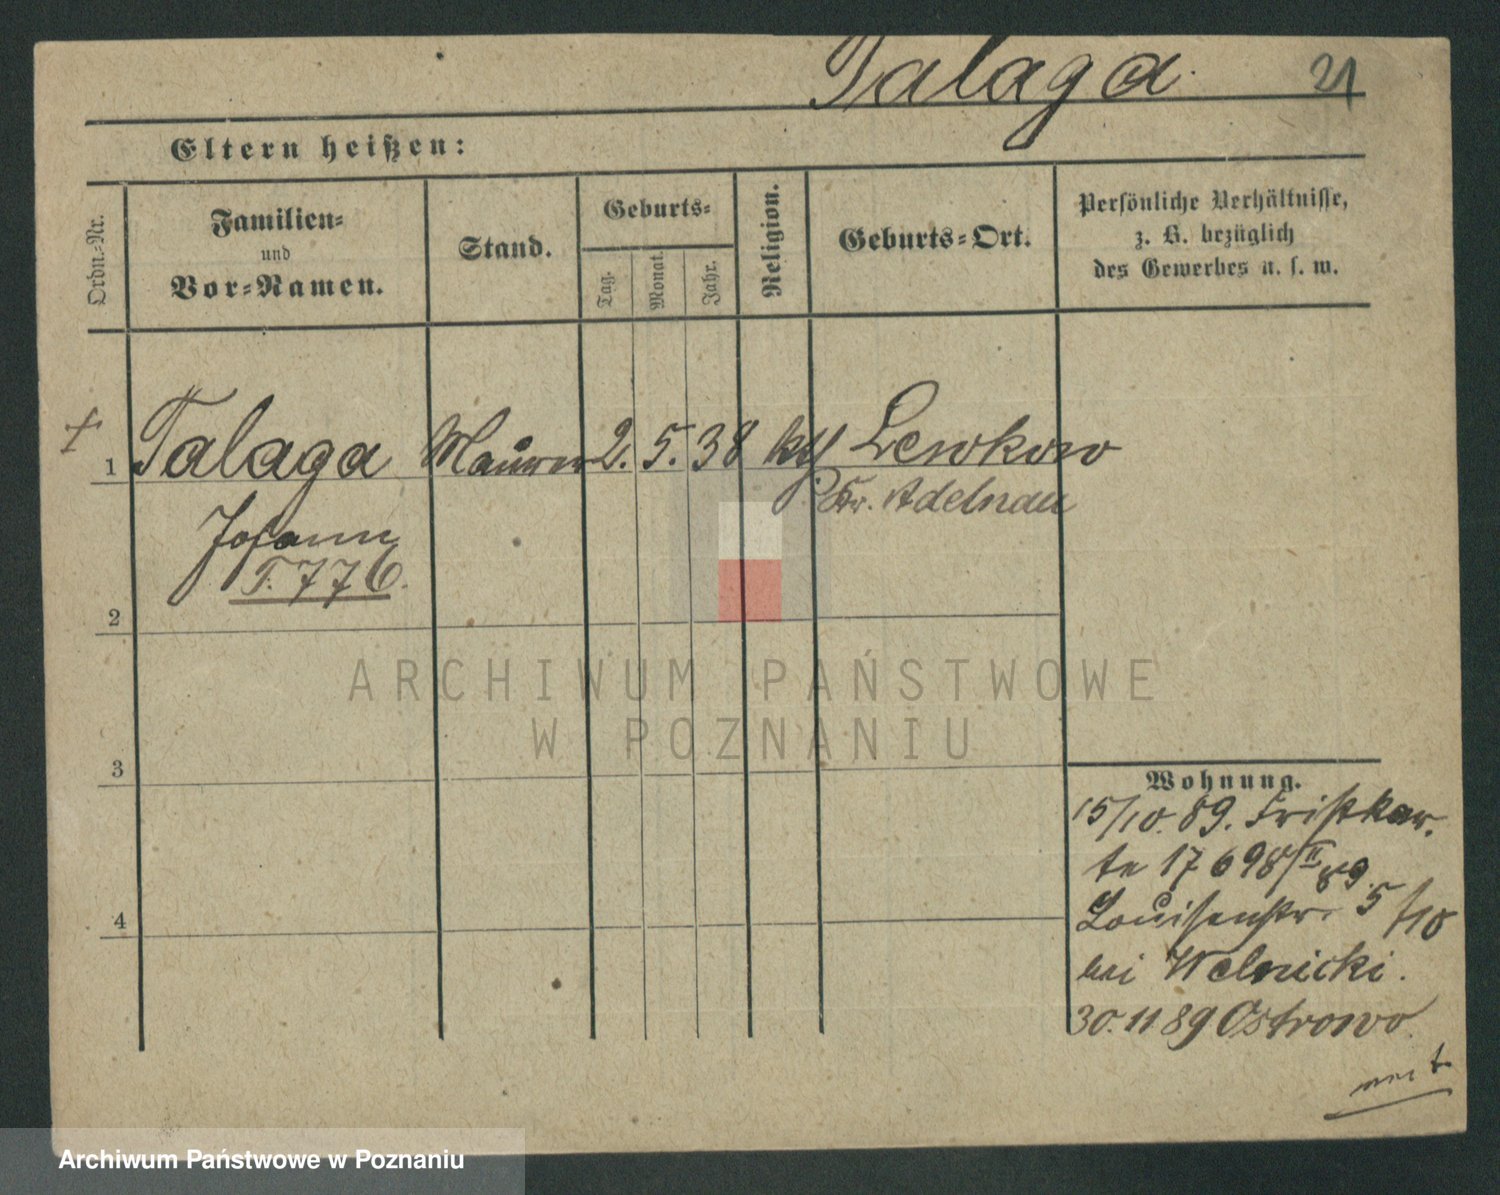 Talaga.
21
Eltern heißen:
Ordn.-Nr.
Familien-
und
Vor-Namen.
Stand.
Geburts-
Tag.
Monat.
Jahr.
Religion.
Geburts-Ort.
Persönliche Verhältnisse,
z. B. bezüglich
des Gewerbes u. s. w.
1 Talaga Maurer 2. 5. 38 kth Lewkow
Kr. Adelnau
Johann
T. 776.
2
3
4
Wohnung.
15/10. 89. Fristkar-
te 17698/II 89.
Louisenstr. 5 /10
bei Welnicki.
30.11 89 Ostrowo.
ARCHIWUM PAŃSTWOWE
W POZNANIU
Archiwum Państwowe w Poznaniu